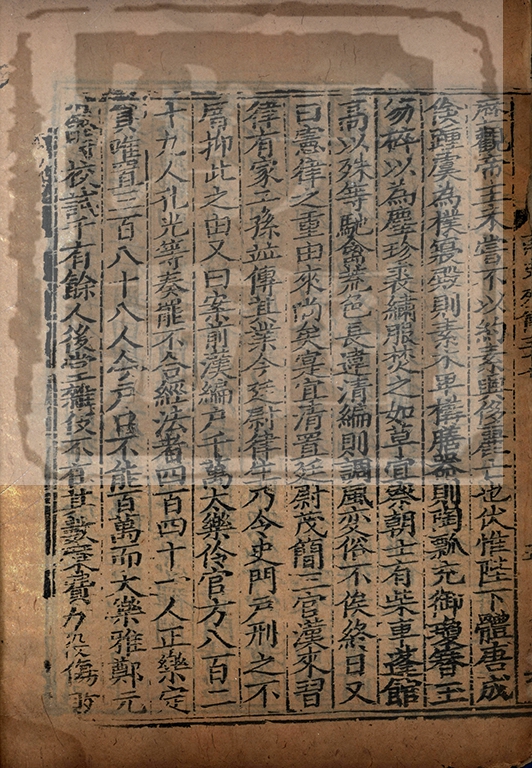 歷觀帝王未嘗不以約素興侈麗亡也伏惟陛下體唐成
儉踵虞為樸寢殿則素木卑構膳器則陶瓢充御瓊簪玉
笏碎以為塵珍裘繡服焚之如草宜察朝士有柴車蓬館
高以殊等馳禽荒色長違清編則調風變俗不俟終日又
曰憲律之重由來尚矣寔宜清置廷尉茂簡三官漢來習
律有家子孫並傳其業今廷尉律生乃令史門戶刑之不
厝抑此之由又曰案前漢編戶千萬太樂伶官方八百二
十九人孔光等奏罷不合經法者四百四十一人正樂定
員唯置三百八十八人今戶口不能百萬而太樂雅鄭元
時校試千有餘人後堂雜伎不在其數糜費力役傷敗